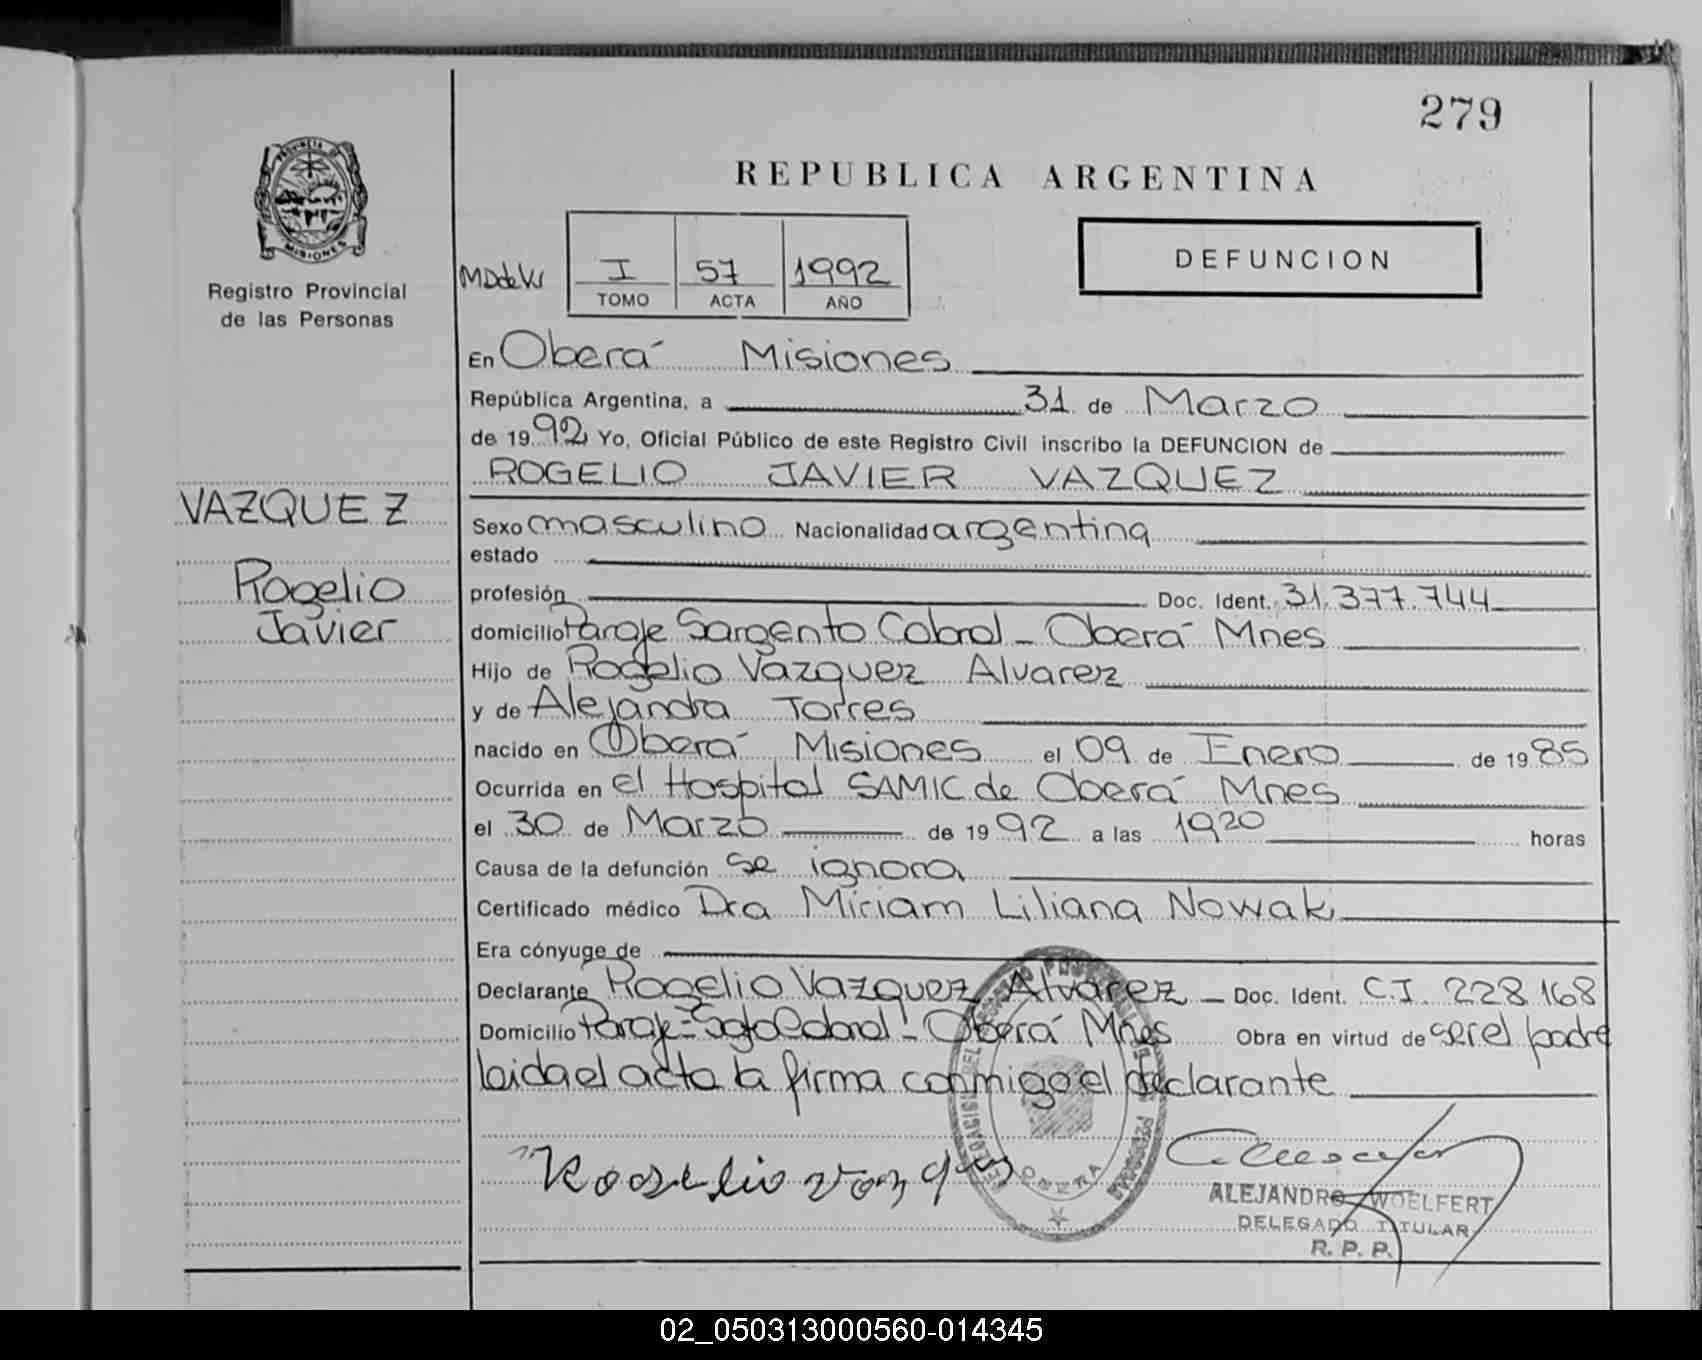 279
PROVINCIA DE
MISIONES
Registro Provincial
de las Personas
REPUBLICA ARGENTINA
I 57 1992
TOMO ACTA AÑO
DEFUNCION
En Oberá Misiones
República Argentina, a 31 de Marzo
de 1992 Yo, Oficial Público de este Registro Civil inscribo la DEFUNCION de
ROGELIO JAVIER VAZQUEZ
VAZQUEZ
Rogelio
Javier
Sexo masculino Nacionalidad argentina
estado
profesión Doc. Ident. 31.377.744
domicilio Paraje Sargento Cabral - Oberá Mnes
Hijo de Rogelio Vazquez Alvarez
y de Alejandra Torres
nacido en Oberá Misiones el 09 de Enero de 1985
Ocurrida en el Hospital SAMIC de Oberá Mnes
el 30 de Marzo de 1992 a las 1920 horas
Causa de la defunción se ignora
Certificado médico Dra Miriam Liliana Nowak
Era cónyuge de
Declarante Rogelio Vazquez Alvarez - Doc. Ident. C.I. 228.168
Domicilio Paraje - Sgto Cabral - Oberá Mnes Obra en virtud de ser el padre
leida el acta la firma conmigo el declarante
OBERA
ALEJANDRO WOELFERT
DELEGADO TITULAR
R. P. P.
02_050313000560-014345